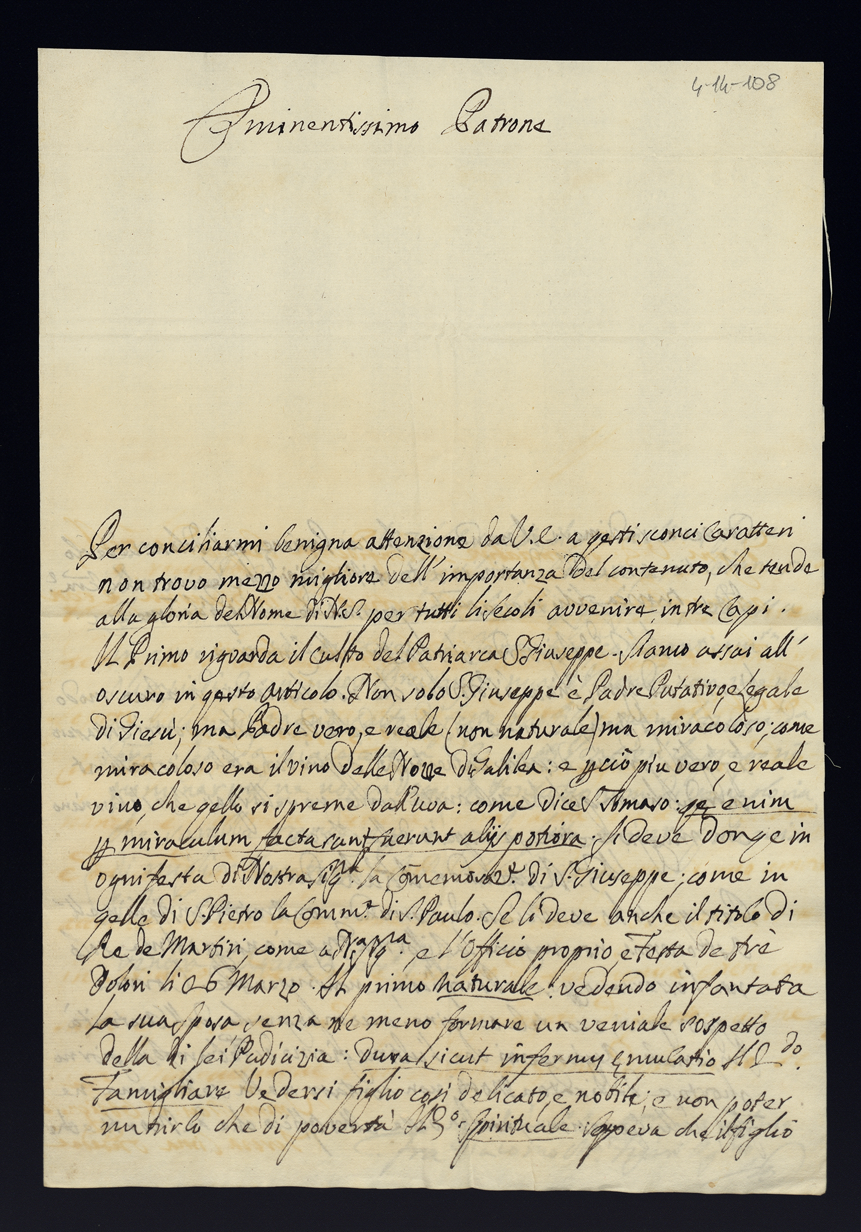 4-14-108
Eminentissimo Patrone
Per conciliarmi benigna attenzione da V. E. a questi sconci Caratteri
non trovo mezzo migliore dell'importanza del contenuto, che tende
alla gloria del Nome di N. S. per tutti li secoli avvenire in tre Capi.
Il Primo riguarda il Culto del Patriarca S. Giuseppe. Siamo assai all'
oscuro in questo Articolo. Non solo S. Giuseppe è Padre Putativo, e legale
di Giesù; ma Padre vero, e reale (non naturale) ma miracoloso; come
miracoloso era il vino delle Nozze di Galilea: e perciò piu vero, e reale
vino, che quello si spreme dall'uva: come dice S. Tomaso: quae enim
per miraculum facta sunt fuerunt alijs potiora. Si deve donque in
ogni festa di Nostra Sig.ra la Comemoraz.e di S. Giuseppe; come in
quelle di S. Pietro la Comm.e di S. Paolo. Se li deve anche il titolo di
Re de Martiri, come a N.ra Sig.ra e l'Officio proprio e Festa de trè
Dolori li 26 Marzo. Il primo naturale: vedendo infantata
la sua sposa, senza ne meno formare un veniale sospetto
della di lei Pudicizia: dura sicut infernus emulatio. Il 2.do
Famigliare Vedersi figlio così delicato, e nobile; e non poter
nutrirlo che di povertà Il 3.o Spirituale. Sapeva che il figlio